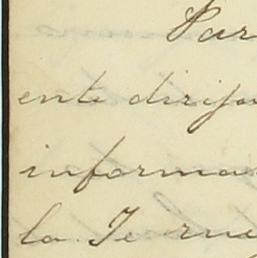 Par
ente dirijo
informa
la Te rue